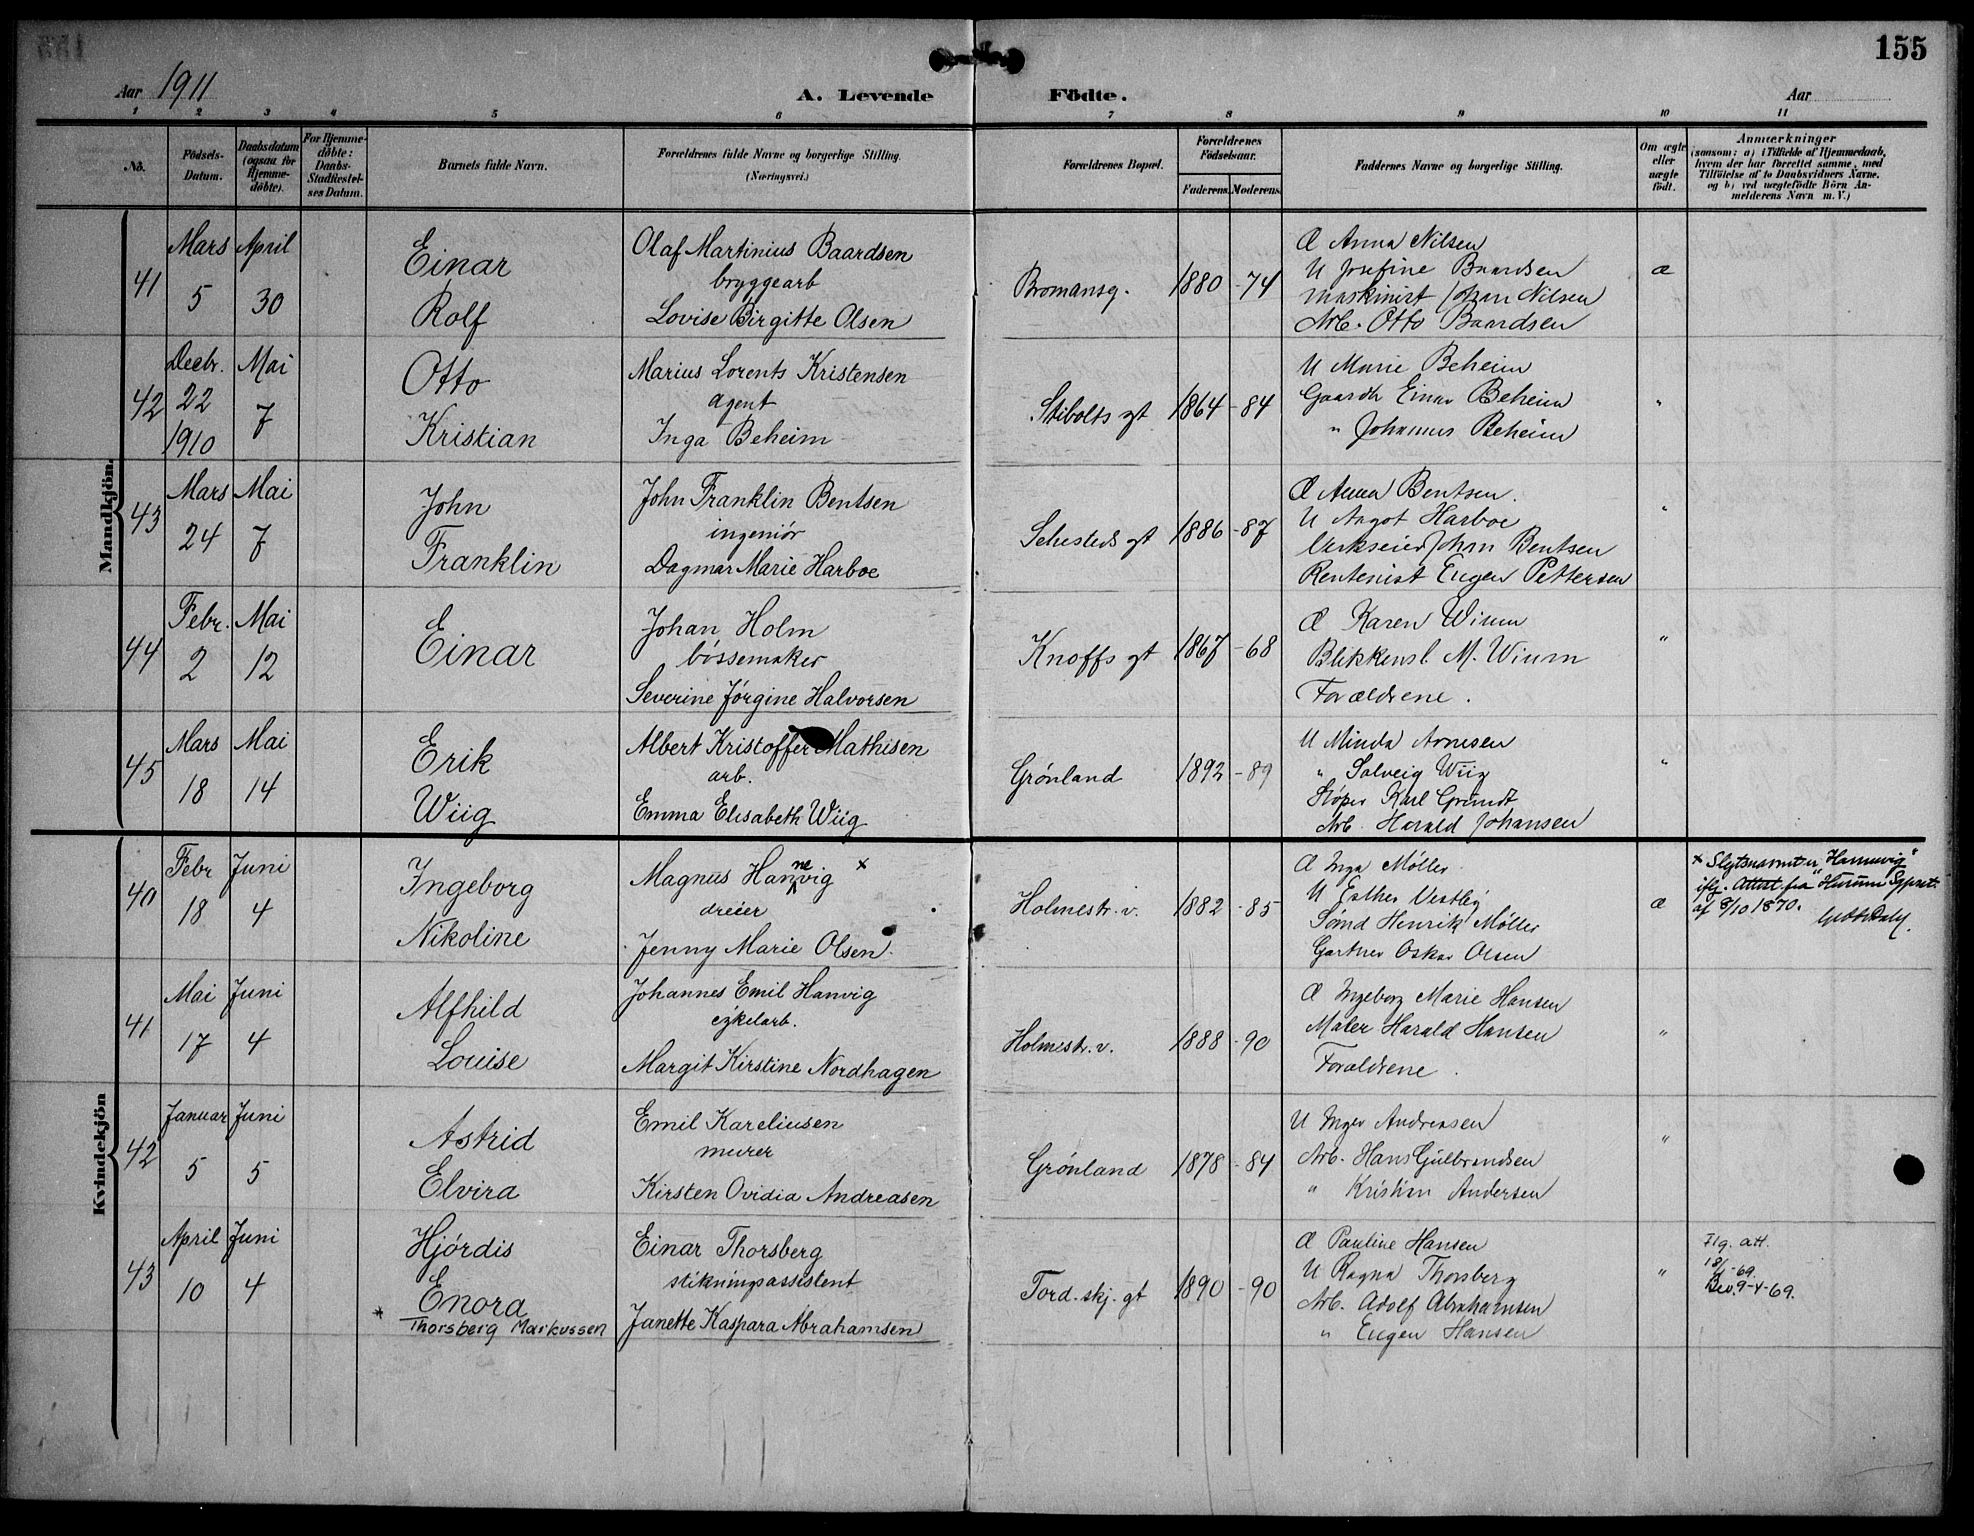 155
Aar 1911
A. Levende Födte.
Aar
1 2 3 4 5 6 7 8 9 10 11
No.
Födsels-
Datum.
Daabsdatum
(ogsaa for
Hjemme-
döbte).
For Hjemme-
döbte:
Daabs-
Stadfæstel-
ses Datum.
Barnets fulde Navn.
Forældrenes fulde Navne og borgerlige Stilling.
(Næringsvei.)
Forældrenes Bopæl.
Forældrenes
Födselsaar.
Faderens. Moderens.
Faddernes Navne og borgerlige Stilling.
Om ægte
eller
uægte
født.
Anmærkninger
(saasom: a) i Tilfælde af Hjemmedaab,
hvem der har forrettet samme, med
Tilföielse af to Daabsvidners Navne,
og b) ved uægtefödte Börn An-
melderens Navn m. V.)
Mandkjön.
41
Mars
5
April
30
Einar
Rolf
Olaf Martinius Baardsen
bryggearb
Lovise Birgitte Olsen
Bromansg.
1880 -74
Æ Anna Nilsen
U Josefine Baardsen
Maskinist Johan Nilsen
Arb. Otto Baardsen
Æ
42
Decbr.
22
1910
Mai
7
Otto
Kristian
Marius Lorents Kristensen
agent
Inga Beheim
Stibolts gt
1864 -84
U Marie Beheim
Gaardb Einar Beheim
" Johannes Beheim
"
43
Mars
24
Mai
7
John
Franklin
John Franklin Bentsen
ingeniør
Dagmar Marie Harboe
Sehesteds gt
1886 -87
Æ Anna Bentsen.
U Aagot Harboe
Verkseier John Bentsen
Rentenist Eugen Pettersen
"
44
Febr.
2
Mai
12
Einar
Johan Holm
bøssemaker
Severine Jørgine Halvorsen
Knoffs gt
1867 -68
Æ Karen Wium
Blikkensl. M. Wium
Forældrene.
"
45
Mars
18
Mai
14
Erik
Wiig
Albert Kristoffer Mathisen
arb.
Emma Elisabeth Wiig
Grønland
1892 -89
U Minda Arnesen
" Solveig Wiig
Støper Karl Grundt
Arb. Harald Johansen
"
Kvindekjön
40
Febr
18
Juni
4
Ingeborg
Nikoline
Magnus Hannevig ×
dreier
Jenny Marie Olsen.
Holmestr. v.
1882 -85
Æ Inga Møller
U Esther Vestby
Smd Henrik Møller
Gartner Oskar Olsen
Æ
× Slegtsnavnet er "Hannevig"
iflg. Attest fra Hurum Sgprst.
af 8/10 1870.
41
Mai
17
Juni
4
Alfhild
Louise
Johannes Emil Hanvig
cykelarb.
Margit Kirstine Nordhagen
Holmestr. v.
1888 -90
Æ Ingeborg Marie Hansen
Maler Harald Hansen
Forældrene.
"
42
Januar
5
Juni
5
Astrid
Elvira
Emil Kareliusen
murer
Kirsten Ovidia Andreasen
Grønland
1878 -84
U Inger Andreasen
Arb. Hans Gulbrandsen
" Kristian Andersen
"
43
April
10
Juni
4
Hjørdis
Enora
* Thorsberg Markussen
Einar Thorsberg
stikningsassistent
Janette Kaspara Abrahamsen
Tord. skj. gt
1890 -90
Æ Pauline Hansen
U Ragna Thorsberg
Arb. Adolf Abrahamsen
" Eugen Hansen
"
Flg. att.
Bev. 9-4-69.